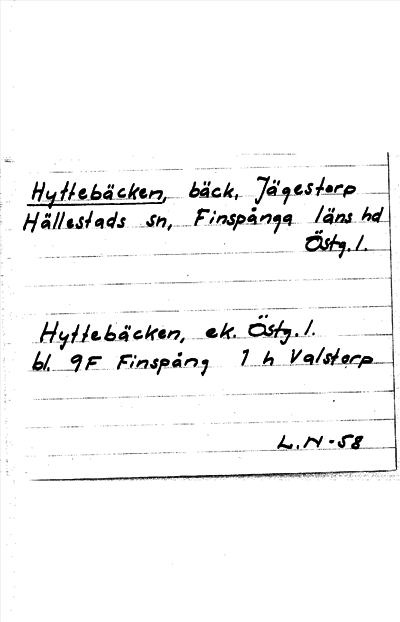 Hyttebäcken, bäck, Jägestorp
Hällestads sn, Finspånga läns hd
Östg. l.
Hyttebäcken, ek. Östg. l.
bl. 9F Finspång 1 h Valstorp
L. N -58